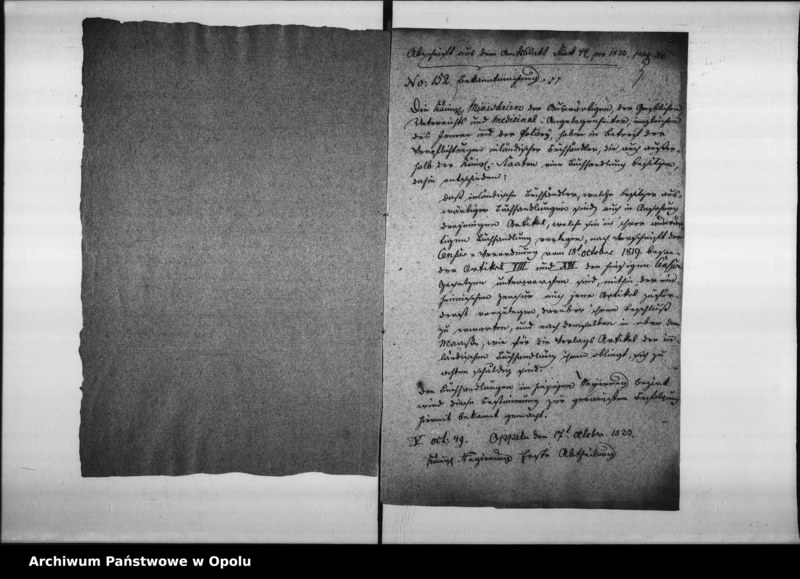 Abschrift aus dem Amtsblatt Stück 44. pro 1820. pag.
No: 152. Bekanntmachung.
Die Königl. Ministerien der Auswärtigen, der Geistlichen
Unterrichts und Medicinal-Angelegenheiten, imgleichen
des Innern und der Polizey, haben in Betreff der
Verpflichtungen inländischer Buchhändler, die auch außer-
halb der Königl. Staaten eine Buchhandlung besitzen,
dahin entschieden:
daß inländische Buchhändler, welche Besitzer aus-
wärtiger Buchhandlungen sind, auch in Ansehung
derjenigen Artikel, welche sie in ihrer auswär-
tigen Buchhandlung verlegen, nach Vorschrift der
Censur-Verordnung vom 18t October 1819.
der Artikel VIII und XVI der hiesigen Censur
Gesetzen unterworfen sind, mithin der ein-
heimischen Zensur auch jene Artikel zuför-
derst vorzulegen, darüber ihren Beschluß
zu erwarten, und nach demselben in eben dem
Maaße, wie für die Verlags Artikel der in-
ländischen Buchhandlung ihnen obliegt, sich zu
achten schuldig sind.
Den Buchhandlungen im hiesigen Regierungs bezirk
wird diese Bestimmung zur genauesten Befolgung
hiermit bekannt gemacht.
Oppeln den 17t October 1820.
Königl. Regierung Erste Abtheilung
Archiwum Państwowe w Opolu